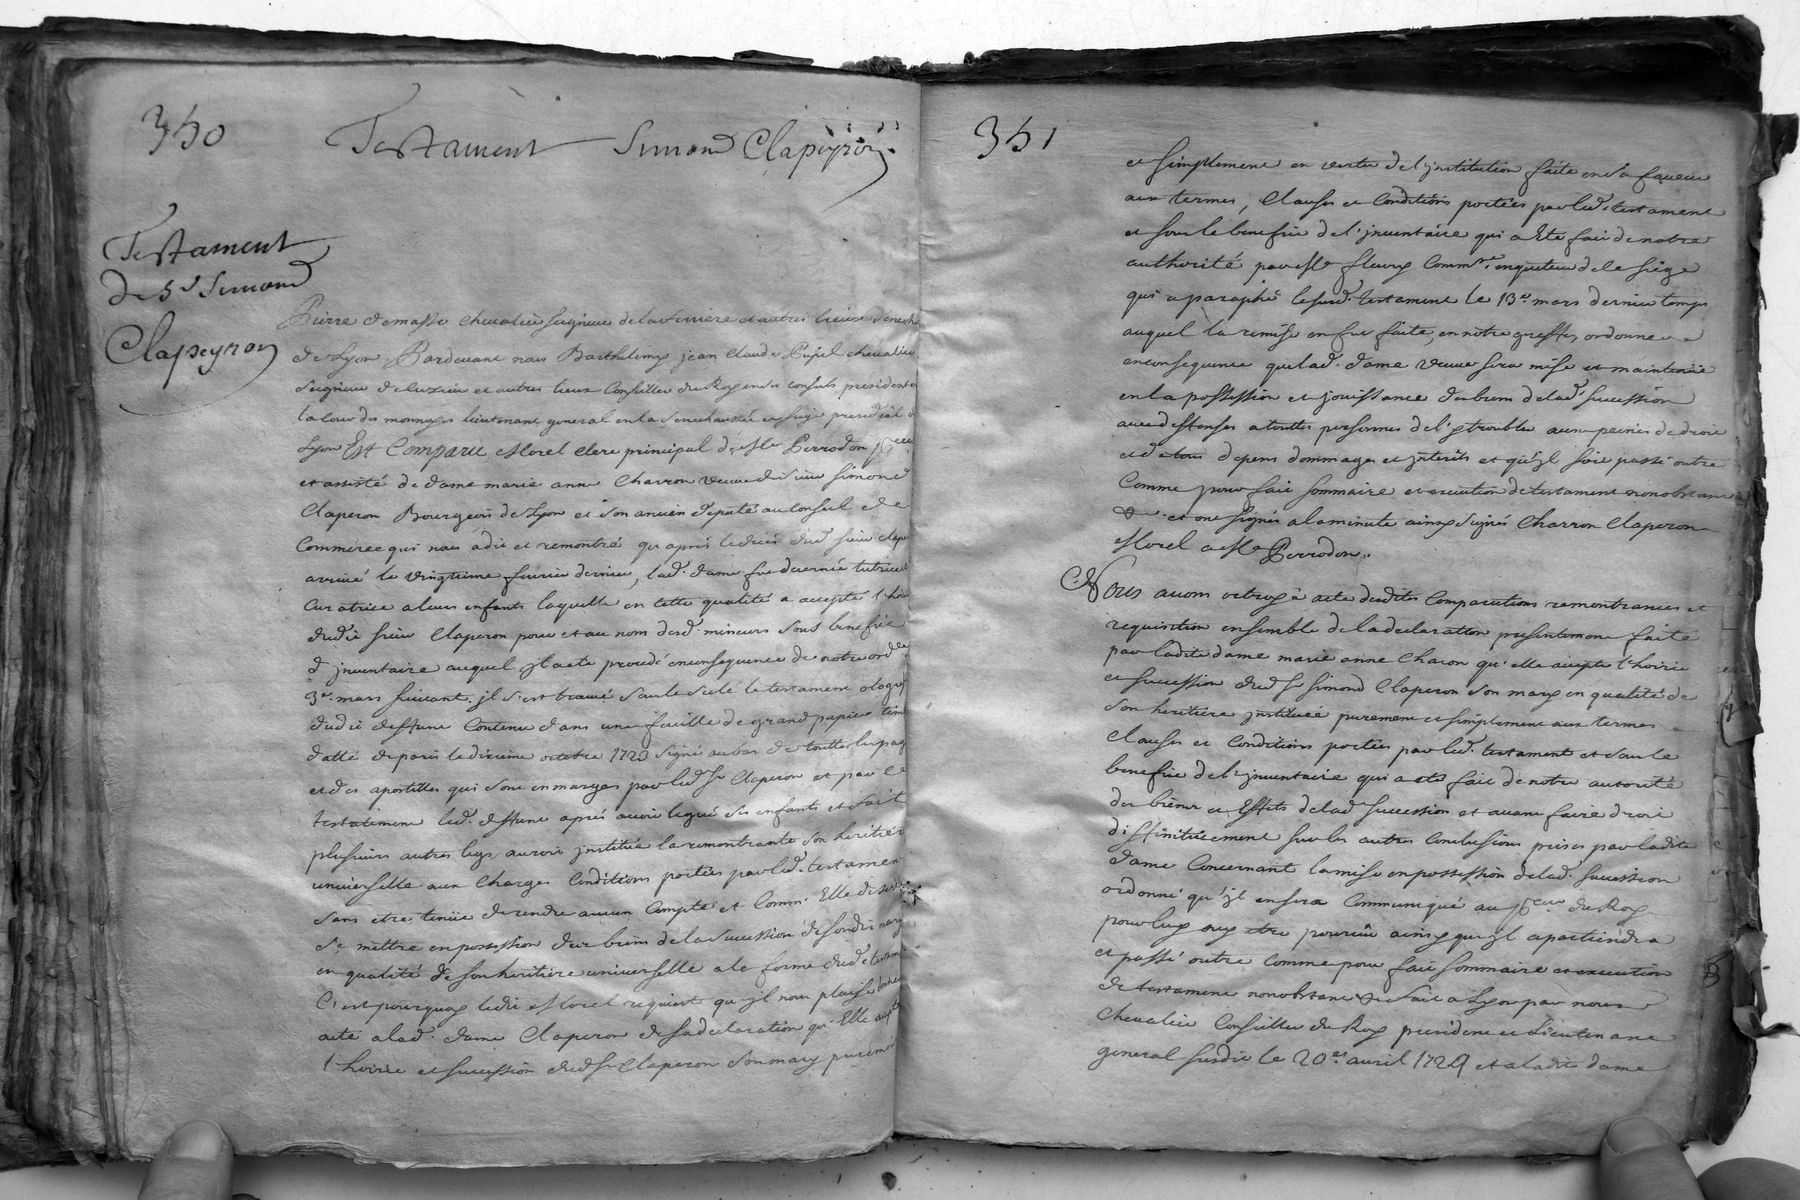 350
Testament Simond Clapeyron.
Testament
de Sr. Simond
Clapeyron
Pierre Demasso chevalier seigneur de la ferriere et autres lieux senech
de Lyon. Pardevant nous Barthelemy jean Claude Pupil chevalier
seigneur de et autres lieux Conseiller du Roy en ses conseils president en
la cour des monnoyes lieutenant general en la senechaussée et siege presidial de
Lyon Est Comparu Morel clerc principal de Me Perrodon
et assisté de dame marie anne Charron veuve de sieur simond
Claperon Bourgeois de Lyon et son ancien deputé au Conseil de
Commerce qui nous a dit et remontré qu'aprés le decés dud. sieur clape
arrivé le vingtieme fevrier dernier, lad. dame fut decernée tutrice et
Curatrice a leurs enfants laquelle en cette qualité a accepté l'hoir
dudit sieur Claperon pour et au nom desd. mineurs sous benefice
d'jnventaire auquel jl a ete procedé en consequence de notre ord
3e. mars suivant. jl s'est trouvé sous le scelé le testament olograf
dudit deffunt Contenu dans une feuille de grand papier timb
datté de paris le dixieme octobre 1723 signé au bas de touttes les pag
et des apostilles qui sont en marges par led. sr Claperon et par le
testatement led. deffunt aprés avoir legué ses enfants et fait
plusieurs autres legs auroit jnstitué la remontrante son heritier
universelle aux Charges Conditions portées par led. testamen
sans etre tenüe de rendre aucun Compte et Comm. Elle desire
se mettre en possession des biens de la succession de sondit mary
en qualité de son heritiere universelle a la forme dud. testam
C'est pourquoy ledit Morel requiert qu'jl nous plaise
acte a lad. dame Claperon de sa declaration qu'Elle accepte
l'hoirie et succession dud. sr Claperon son mary purement
351
et simplement en vertu de l'jnstitution faite en sa faveur
aux termes, Clauses et Conditions portées par led. testament
et sous le benefice de l'jnventaire qui a été fait de notre
authorité par Me fleury Commre. enqueteur de ce siege
qui a paraphé lesusd. testament le 13e mars dernier temps
auquel la remise en fut faite, en notre greffe, ordonner
en consequence que lad. dame veuve sera mise et maintenüe
en la possession et jouissance des biens de lad. succession
avec deffenses a touttes personnes de l'y troubler aux peines de droit
et de tous depens dommages et jnterets et qu'jl soit passé outre
Comme pour fait sommaire et execution de testament nonobstant
&. et ont signés a la minute ainsy signés Charron Claperon
Morel et Me Perrodon.
Nous avons octroyé acte desdites Comparutions remontrances et
requisition ensemble de la declaration presentement faite
par ladite dame marie anne Charon qu'elle accepte l'hoirie
et succession dud. sr simond Claperon son mary en qualité de
son heritiere jnstituée purement et simplement aux termes
Clauses et Conditions portées par led. testament et sous le
benefice de l'jnventaire qui a eté fait de notre autorité
des biens et Effets de lad. succession et avant faire droit
diffinitivement sur les autres Conclusions prises par ladite
dame Concernant la mise en possession de lad. succession
ordonné qu'jl en sera Communiqué au du Roy
pour luy ouy etre pourvüe ainsy qu'jl apartiendra
et passé outre Comme pour fait sommaire et execution
de testament nonobstant & fait a Lyon par nous
Chevalier Conseiller du Roy president et Lieutenant
general susdit le 20e. avril 1724 et a ladite dame